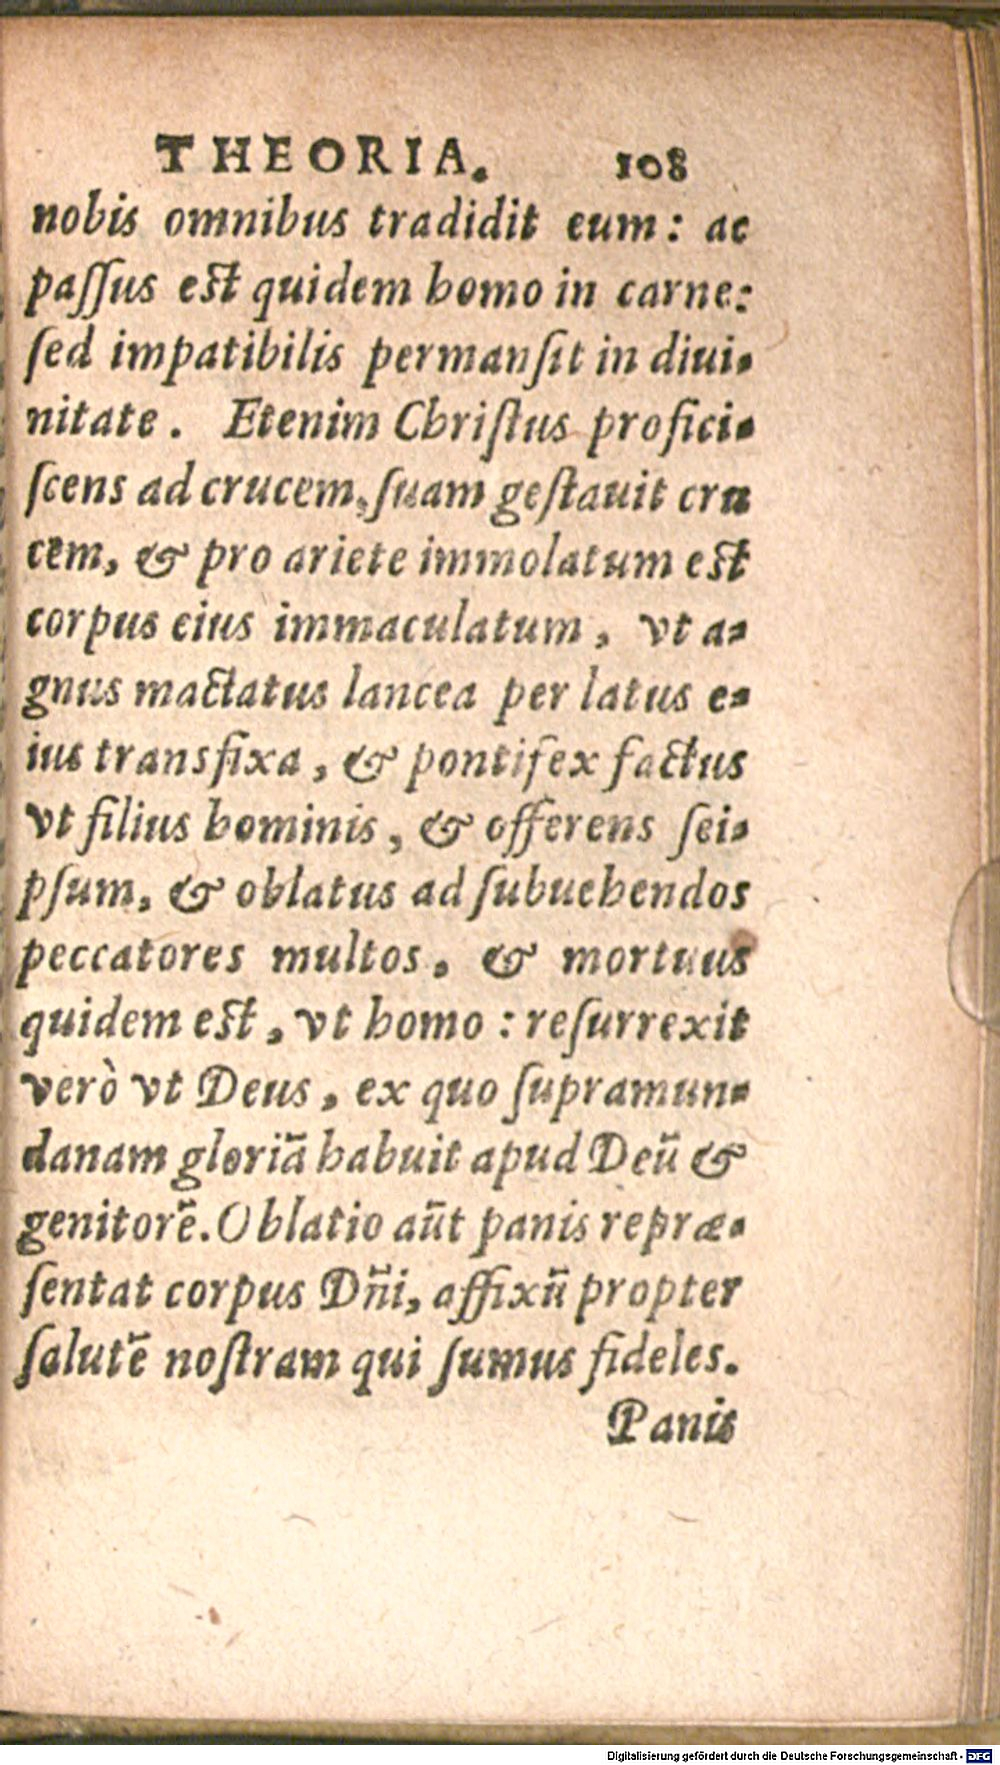 THEORIA. 108
nobis omnibus tradidit eum: ac
paſſus eſt quidem homo in carne:
ſed impatibilis permanſit in diui-
nitate. Etenim Chriſtus profici-
ſcens ad crucem, ſuam geſtauit cru
cem, & pro ariete immolatum eſt
corpus eius immaculatum, vt a-
gnus mactatus lancea per latus e-
ius transfixa, & pontifex factus
vt filius hominis, & offerens ſei-
pſum, & oblatus ad ſubuehendos
peccatores multos, & mortuus
quidem eſt, vt homo: reſurrexit
verò vt Deus, ex quo ſupramun-
danam gloriā habuit apud Deū &
genitorē. Oblatio aūt panis repræ-
ſentat corpus Dñi, affixū propter
ſalutē noſtram qui ſumus fideles.
Panis
Digitalisierung gefördert durch die Deutsche Forschungsgemeinschaft - DFG